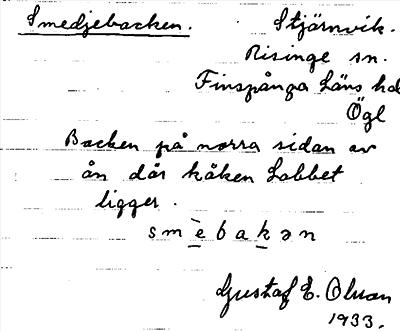 Smedjebacken. Stjärnvik.
Risinge sn.
Finspånga Läns hd
Ögl
Backen på norra sidan av
ån där kåken Labbet
ligger.
smèbakən
Gustaf E. Olsson
1933.